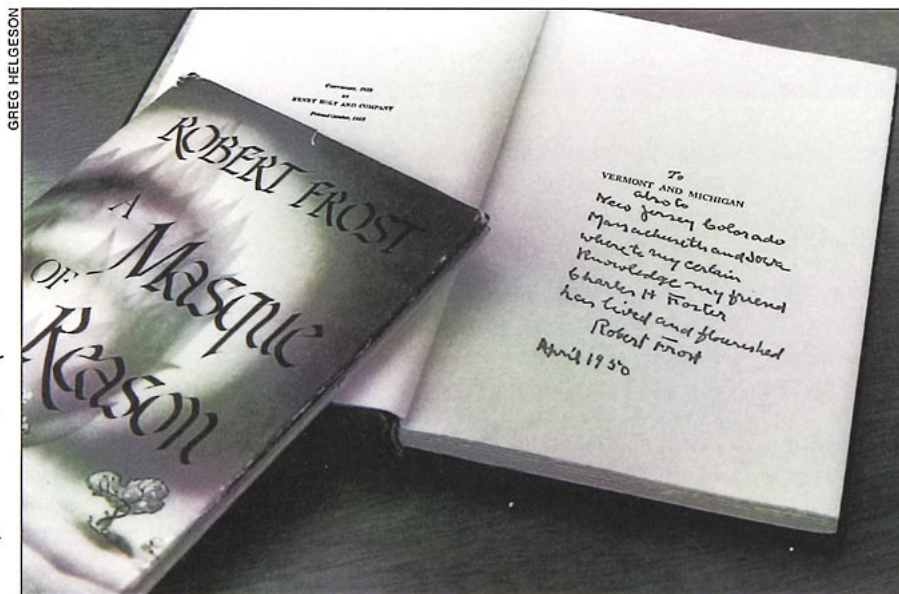 GREG HELGESON
ROBERT FROST
A
Masque
OF
Reason
COPYRIGHT, 1923
BY
HENRY HOLT AND COMPANY
Printed October, 1923
To
VERMONT AND MICHIGAN
also to
New Jersey Colorado
Massachusetts and Iowa
where to my certain
Knowledge my friend
Charles H Foster
has lived and flourished
Robert Frost
April 1950